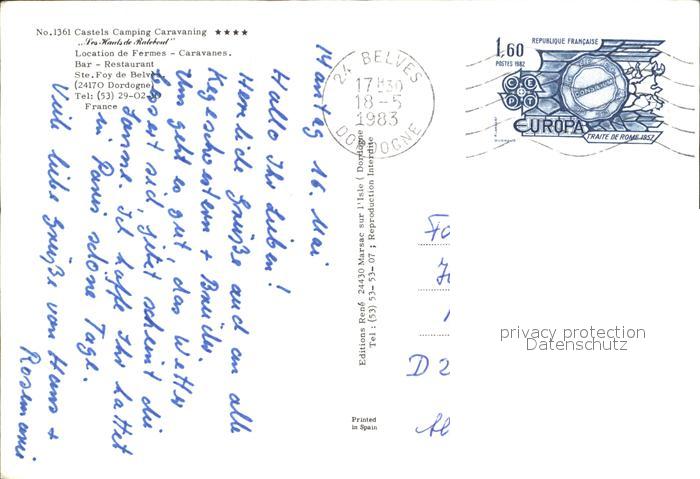 No.1361 Castels Camping Caravaning ★★★★
"Les Hauts de Ratebout"
Location de Fermes - Caravanes.
Bar - Restaurant
Ste.Foy de Belvès
(24170 Dordogne)
Tel: (53) 29-02-
France
Montag 16. Mai
Hallo Ihr Lieben!
Herzliche Grüße auch an alle
Kegelschwestern + Brüder.
Uns geht es gut, das Wetter
bessert sich, jetzt scheint die
Sonne. Ich hoffe Ihr hattet
in Paris schöne Tage.
Viele liebe Grüße von Hans +
Rosemarie
Editions René 24430 Marsac sur l'Isle ( Dordogne
Tel : (53) 53-53-07 ; Reproduction Interdite
Printed
in Spain
24 BELVES
17H30
18-5
1983
DORDOGNE
REPUBLIQUE FRANÇAISE
1,60
POSTES 1982
CEPT
EUROPA
TRAITE DE ROME 1957
D 2
privacy protection
Datenschutz